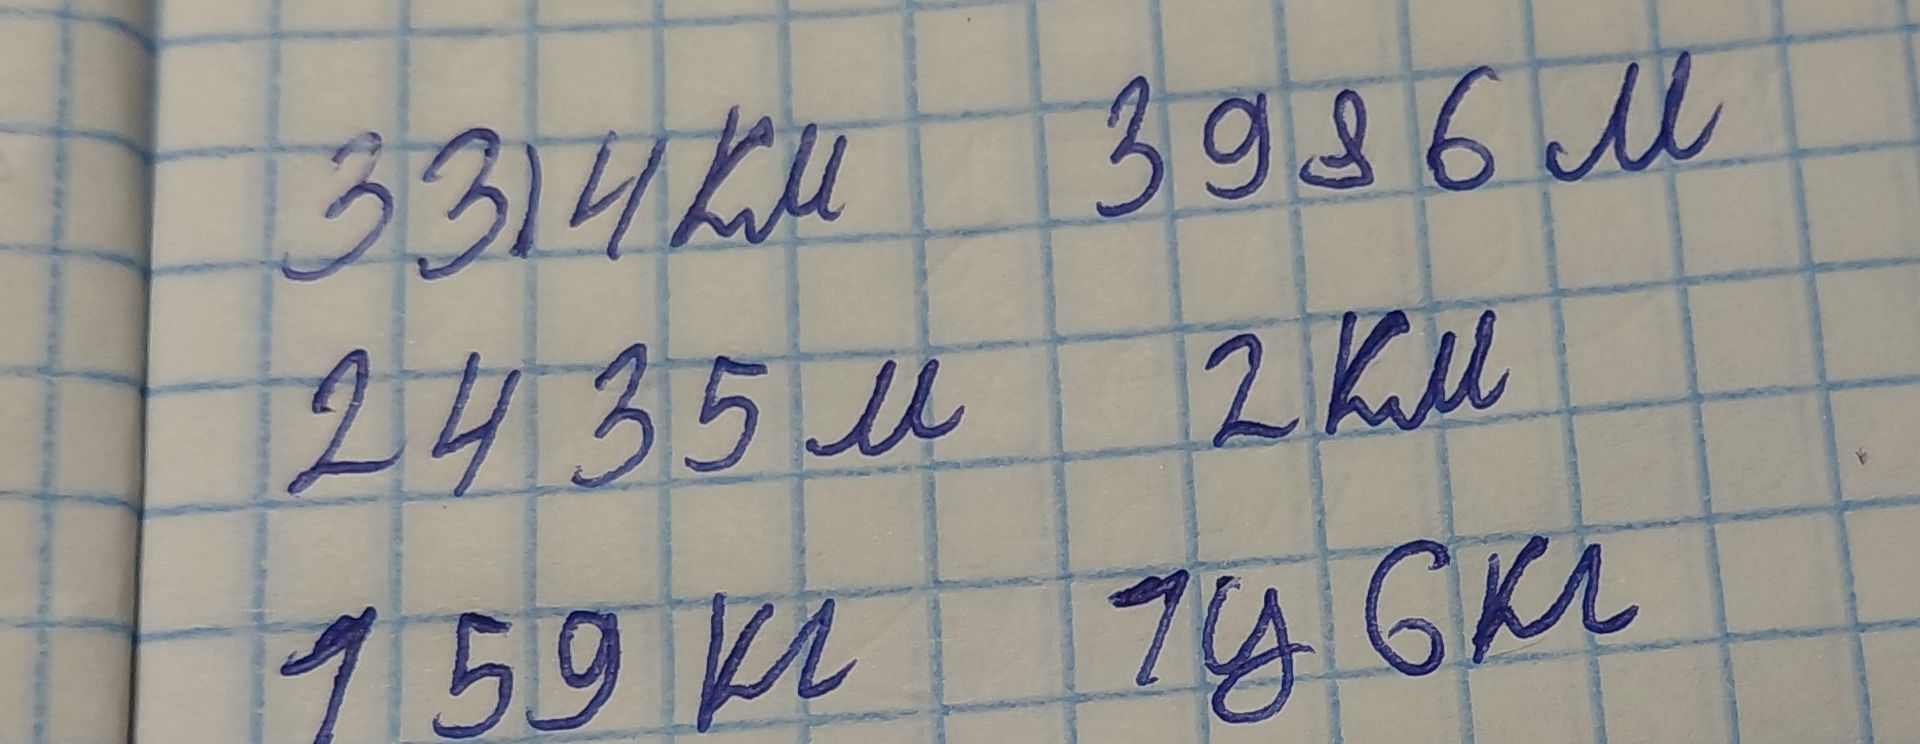 33,4 км 3986 м
2435 м 2 км
159 кг 1ц 6 кг